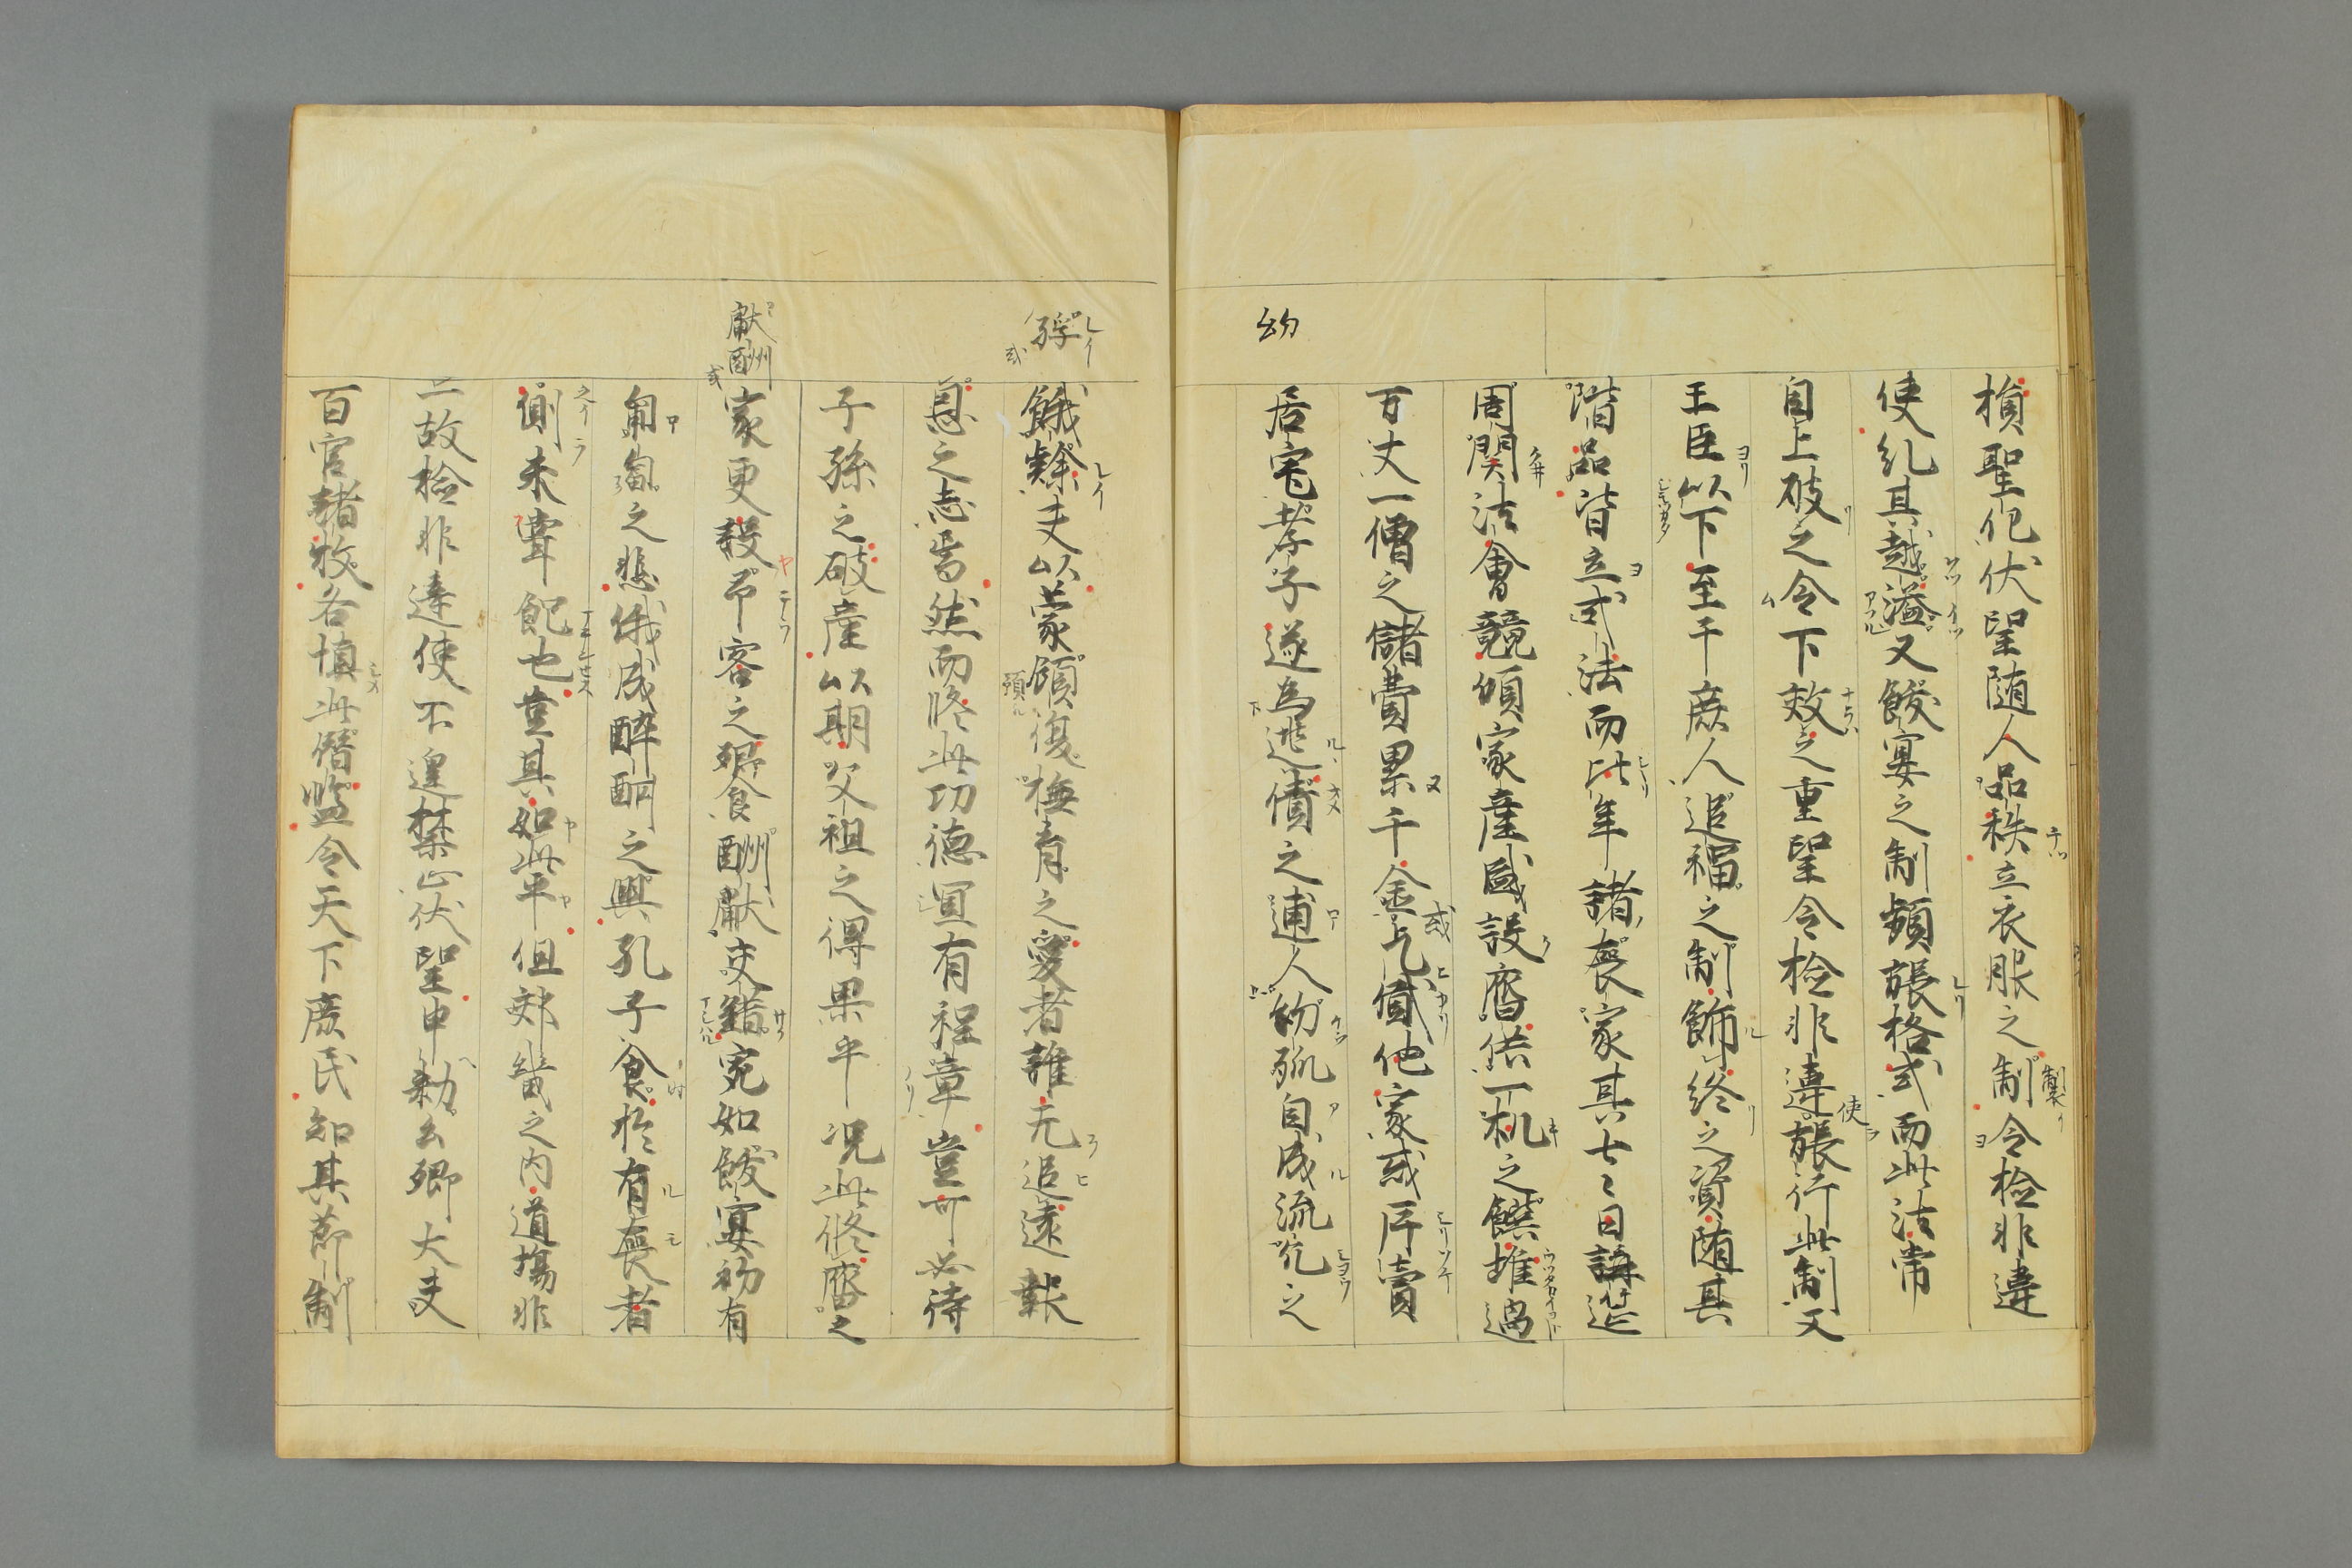 損聖化伏望随人品秩立衣服之制令検非違
使糺其越溢又餕宴之制頻張格式而此法常
自上破之令下效之重望令検非違張行此制又
王臣以下至于庶人追福之制餝終之資随其
階品皆立式法而比年諸喪家其七〻日講莚
周関法會競傾家産盛設齋供一机之饌堆過
方丈一僧之儲費累千金或乞貸他家或斥賣
居宅孝子遂為逃債之逋人幼孤自成流冗之
餓殍夫以蒙顧復撫育之愛者誰无追遠報
恩之志焉然而修此功德宜有程章豈可必待
子孫之破産以期父祖之得果乎况此修齋之
家更設弔客之饗食酬獻交錯宛如餕宴初有
匍匐之悲俄成醉酗之興孔子食於有喪者
側未甞飽也豈其如此乎但郊畿之内道場非
一故検非違使不遑禁止伏望申勅公卿大夫
百官諸牧各慎此僭監令天下庶民知其節制
幼
殍
獻酬
製
使